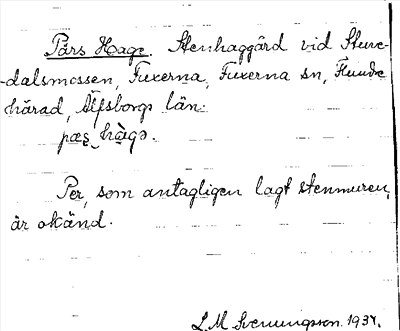 Pärs Hage. Stenhaggård vid Sture-
-dalsmossen, Fuxerna, Fuxerna sn, Flundre
härad, Älfsborgs län.
hàgə.
Per, som antagligen lagt stenmuren,
är okänd.
L.M. Svenungsson. 1937.